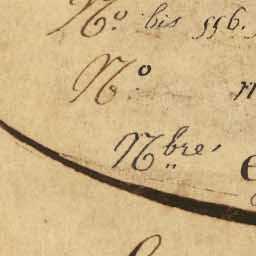 Nº. bis 556.
Nº.
Nbre,